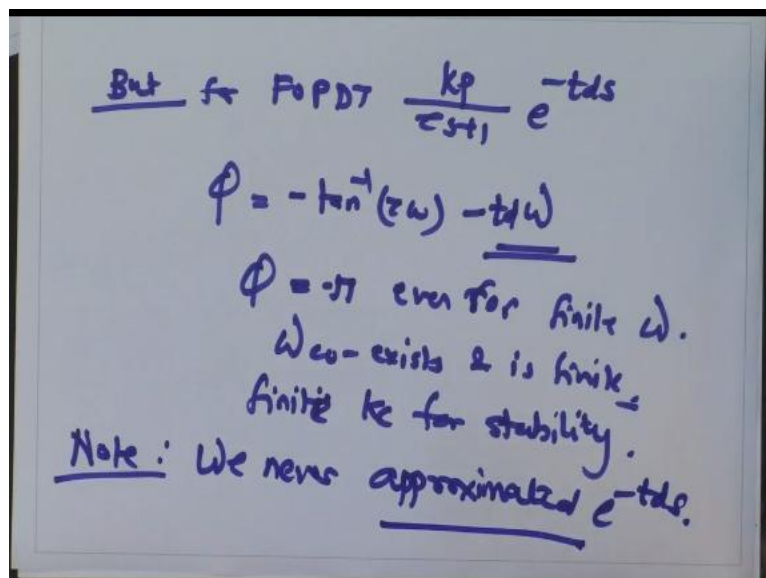 But for FOPDT kp/τs+1 e^-tds
φ = -tan^-1(τω) - tdω
φ = -π even for finite ω.
ωco - exists & is finite.
finite kc for stability.
Note: We never approximated e^-tds.